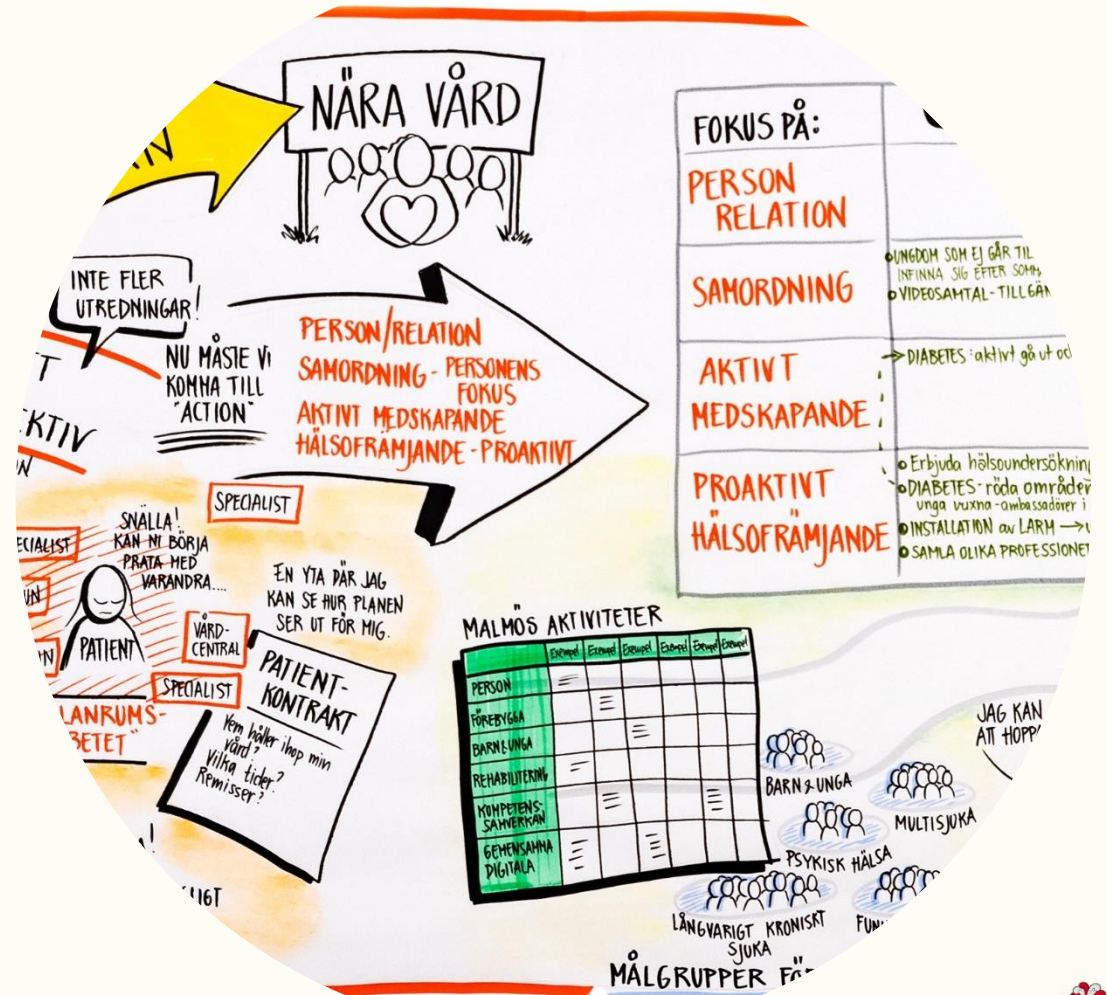 NÄRA VÅRD
INTE FLER
UTREDNINGAR!
NU MÅSTE VI
KOMMA TILL
"ACTION"
PERSON/RELATION
SAMORDNING - PERSONENS
FOKUS
AKTIVT MEDSKAPANDE
HÄLSOFRÄMJANDE - PROAKTIVT
FOKUS PÅ:
PERSON
RELATION
SAMORDNING
UNGDOM SOM EJ GÅR TIL
INFINNA SIG EFTER
VIDEOSAMTAL - TILLGÄN
AKTIVT
MEDSKAPANDE
DIABETES: aktivt gå ut oc
PROAKTIVT
HÄLSOFRÄMJANDE
Erbjuda hälsoundersöknin
DIABETES - röda områden
unga vuxna - ambassadörer i
INSTALLATION av LARM →
SAMLA OLIKA PROFESSIONE
SPECIALIST
SNÄLLA!
KAN NI BÖRJA
PRATA MED
VARANDRA....
ECIALIST
PATIENT
VÅRD-
CENTRAL
SPECIALIST
LANRUMS-
BETET"
EN YTA DÄR JAG
KAN SE HUR PLANEN
SER UT FÖR MIG.
PATIENT-
KONTRAKT
Vem håller ihop min
vård?
Vilka tider?
Remisser?
MALMÖS AKTIVITETER
Exempel Exempel Exempel Exempel Exempel Exempel
PERSON
FÖREBYGGA
BARN & UNGA
REHABILITERING
KOMPETENS-
SAMVERKAN
GEMENSAMMA
DIGITALA
JAG KAN
ATT HOPP
BARN & UNGA
MULTISJUKA
PSYKISK HÄLSA
LÅNGVARIGT KRONISKT
SJUKA
FUN
MÅLGRUPPER FÖR